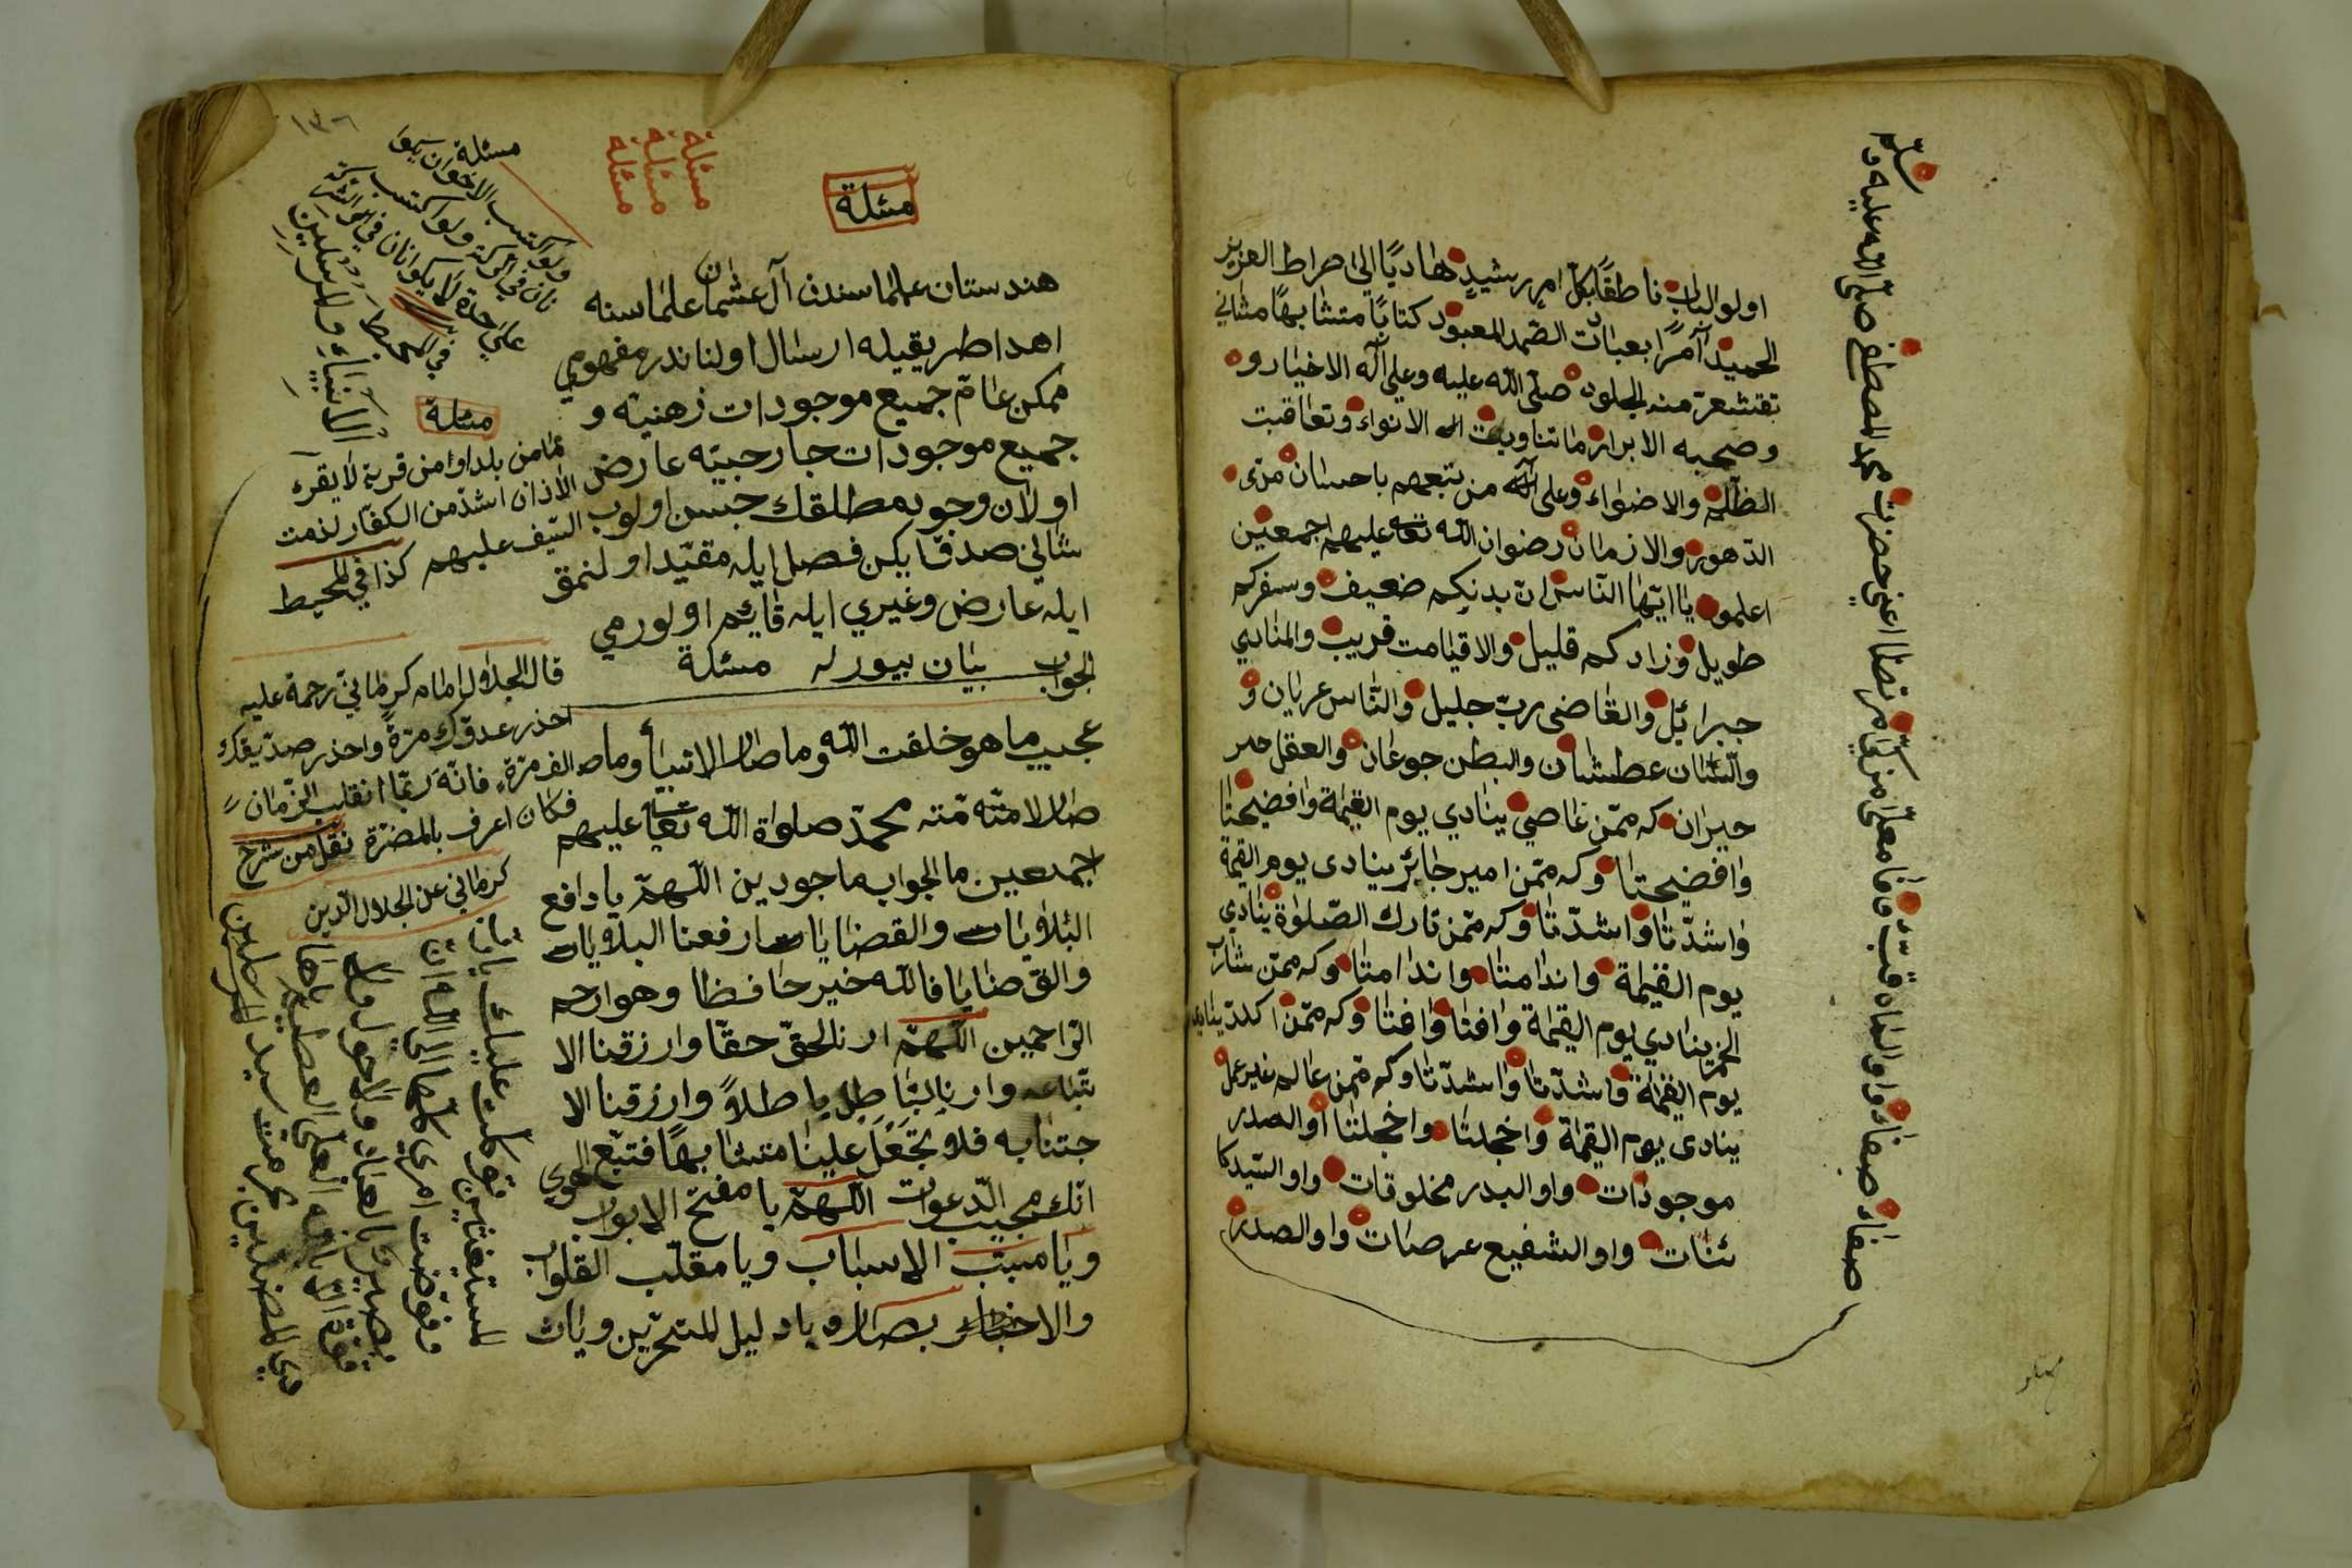 اولو الباب ناطقًا بكلّ امر رشيد هاديًا الى صراط العزيز
الحميد آمرًا بعبادت الصّمد المعبود كتابًا متشابهًا مثاني
تقتشعرّ منه الجلود صلّى اللّه عليه وعلى آله الاخيار و
وصحبه الابرار ما تناوبت الانواء وتعاقبت
الظّلم والاضواء وعلى من يتبعهم باحسان مدى
الدّهور والازمان رضوان اللّه تعا عليهم اجمعين
اعلموا يا ايّها النّاس انّ بدنكم ضعيف وسفركم
طويل وزادكم قليل والاقيامت قريب والمنادي
جبرائل والقاضى ربّ جليل والنّاس عريان و
واللّسان عطشان والبطن جوعان والعقل حير
حيران كه ممّن عاصي ينادي يوم القيمة وافضيحتا
وافضيحتا وكه ممّن امير جائر ينادى يوم القيمة
واشدّتا واشدّتا وكه ممّن تارك الصّلوة ينادي
يوم القيمة واندامتا واندامتا وكه ممّن شارب
الخمر ينادي يوم القيمة وافتا وافتا وكه ممّن
يوم القيمة واشدّتا واشدّتا وكه ممّن عالم غير عمل
ينادى يوم القيمة واخجلتا واخجلتا او الصدر
موجودات واو البدر مخلوقات واو السّيد كا
ئنات واو الشفيع عرصات واو الصدر
صفاء صفاء واو الماه
اعني حضرت محمد المصطفى صلّى اللّه عليه و
سلّم
١٣٦
مسئلة
مسئلة
مسئلة
مسئلة
هندستان علماسندن آل عثمان علماسنه
اهدا طريقيله ارسال اولناندر مفهومي
ممكن عامّ جميع موجودات ذهنيّه و
جميع موجودات خارجيّه عارض
اولان وجود مطلقك جنس اولوب
شاني صدقا يكن فصل ايله مقيّد اولنمق
ايله عارض وغيري ايله قائم اولورمي
الجواب بيان بيورله مسئلة
عجيب ما هو خلقت اللّه وما صار الانبيأ وما
صار لامّته محمّد صلواة اللّه تعا عليهم
اجمعين ما الجواب ماجودين اللّهمّ يا دافع
البلاويات والقضايات ارفعنا البلاويات
والقضايا فاللّه خير حافظا وهو ارحم
الرّاحمين اللّهمّ ارنا الحقّ حقّا وارزقنا الا
تّباعه وارنا البّاطل باطلاً وارزقنا الا
جتنابه فلا تجعل علينا متشابهًا فتبّع الهوي
انّك مجيب الدّعوات اللّهمّ يا مفتّح الابواب
ويا مسبّب الاسباب ويا مقلّب القلوب
والابصار ويا دليل المتحيّرين ويا
مسئلة الاخوان
ولو اكتسب
على حدة لا يكونان في
في المحيط
الانبياء والمرسلين
مسئلة
مامن بلد او من قرية لا يقرء
الاذان اشدّ من الكفّار لزمت
السّيف عليهم كذا في المحيط
قال الجلال امام كرماني رحمة عليه
احذر عدوّك مرّةً واحذر صديقك
الف مرّة فانّه ربّما انقلب الزّمان
فكان اعرف بالمضرّة نقل من شرح
كرماني عن الجلال الدّين
المستغيثين توكّلت عليك يا
وفوّضت امري كلّها الى اللّه انّ
بصير بالعباد ولا حول ولا
قوّة الّا باللّه العلى العظيم
بحرمت سيد المرسلين